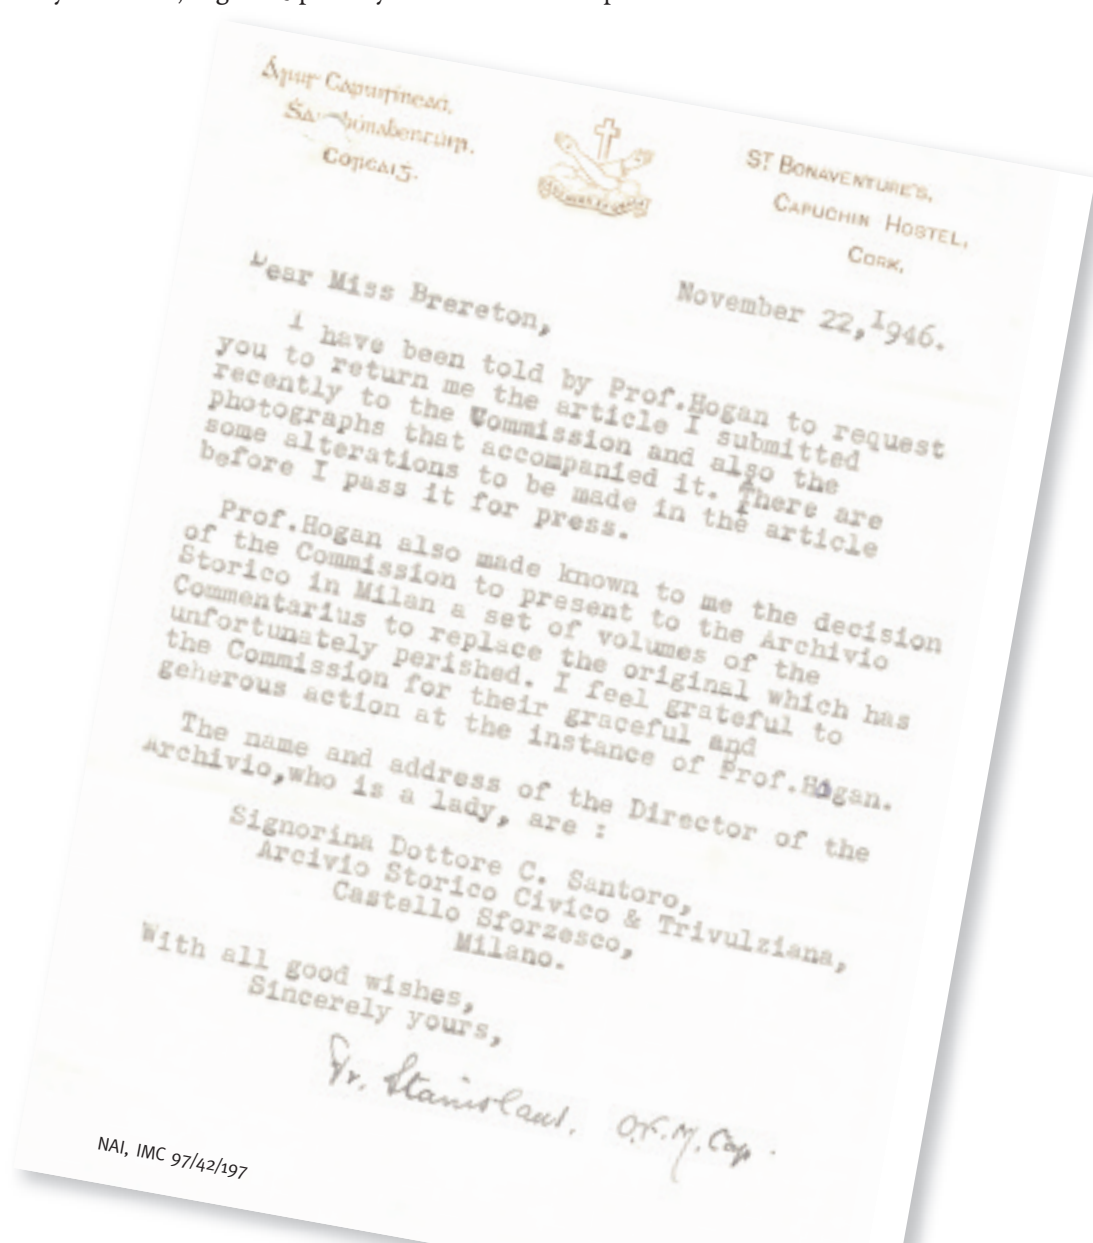 Corcaiġ.
ST BONAVENTURE'S,
CAPUCHIN HOSTEL,
CORK,
November 22, 1946.
Dear Miss Brereton,
I have been told by Prof.Hogan to request
you to return me the article I submitted
recently to the Commission and also the
photographs that accompanied it. There are
some alterations to be made in the article
before I pass it for press.
Prof.Hogan also made known to me the decision
of the Commission to present to the Archivio
Storico in Milan a set of volumes of the
Commentarius to replace the original which has
unfortunately perished. I feel grateful to
the Commission for their graceful and
geherous action at the instance of Prof.Hogan.
The name and address of the Director of the
Archivio,who is a lady, are :
Signorina Dottore C. Santoro,
Arcivio Storico Civico & Trivulziana,
Castello Sforzesco,
Milano.
With all good wishes,
Sincerely yours,
Fr. Stanislaus. O.F.M.Cap.
NAI, IMC 97/42/197